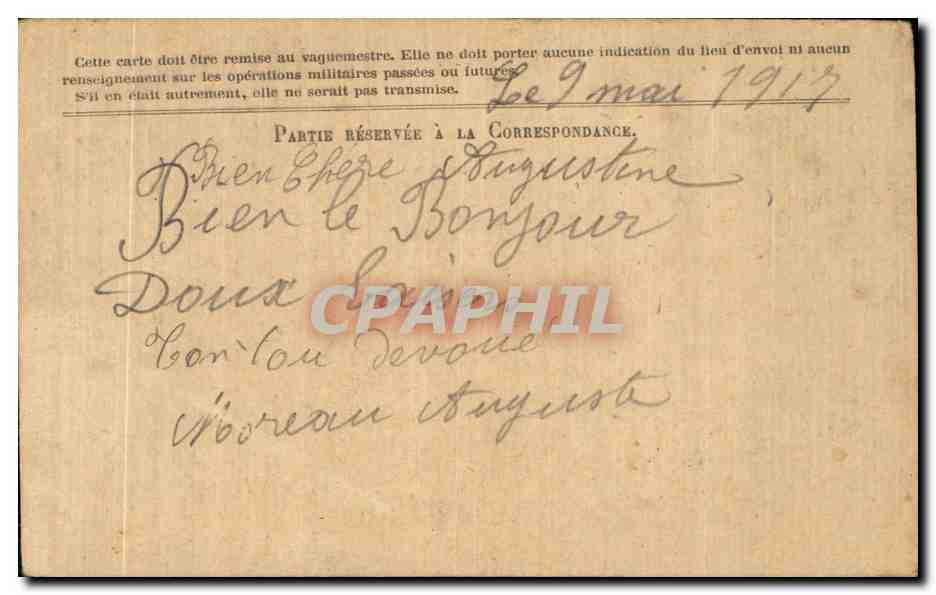 Cette carte doit être remise au vaguemestre. Elle ne doit porter aucune indication du lieu d'envoi ni aucun
renseignement sur les opérations militaires passées ou futures.
S'il en était autrement, elle ne serait pas transmise.
Le 9 mai 1917
PARTIE RÉSERVÉE À LA CORRESPONDANCE.
Bien Chére Augustine
Bien le Bonjour
Doux
CPAPHIL
Ton Lou devoué
Moreau Auguste